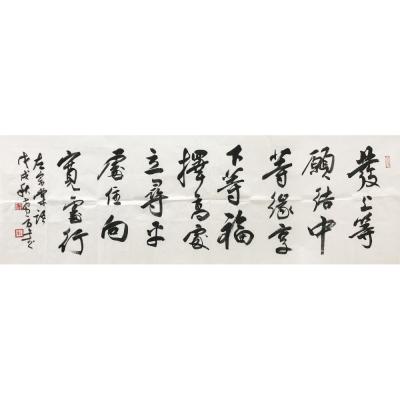 發上等
願结中
等緣享
下等福
擇高處
立尋平
處住向
寬處行
左宗棠语
戊戌秋